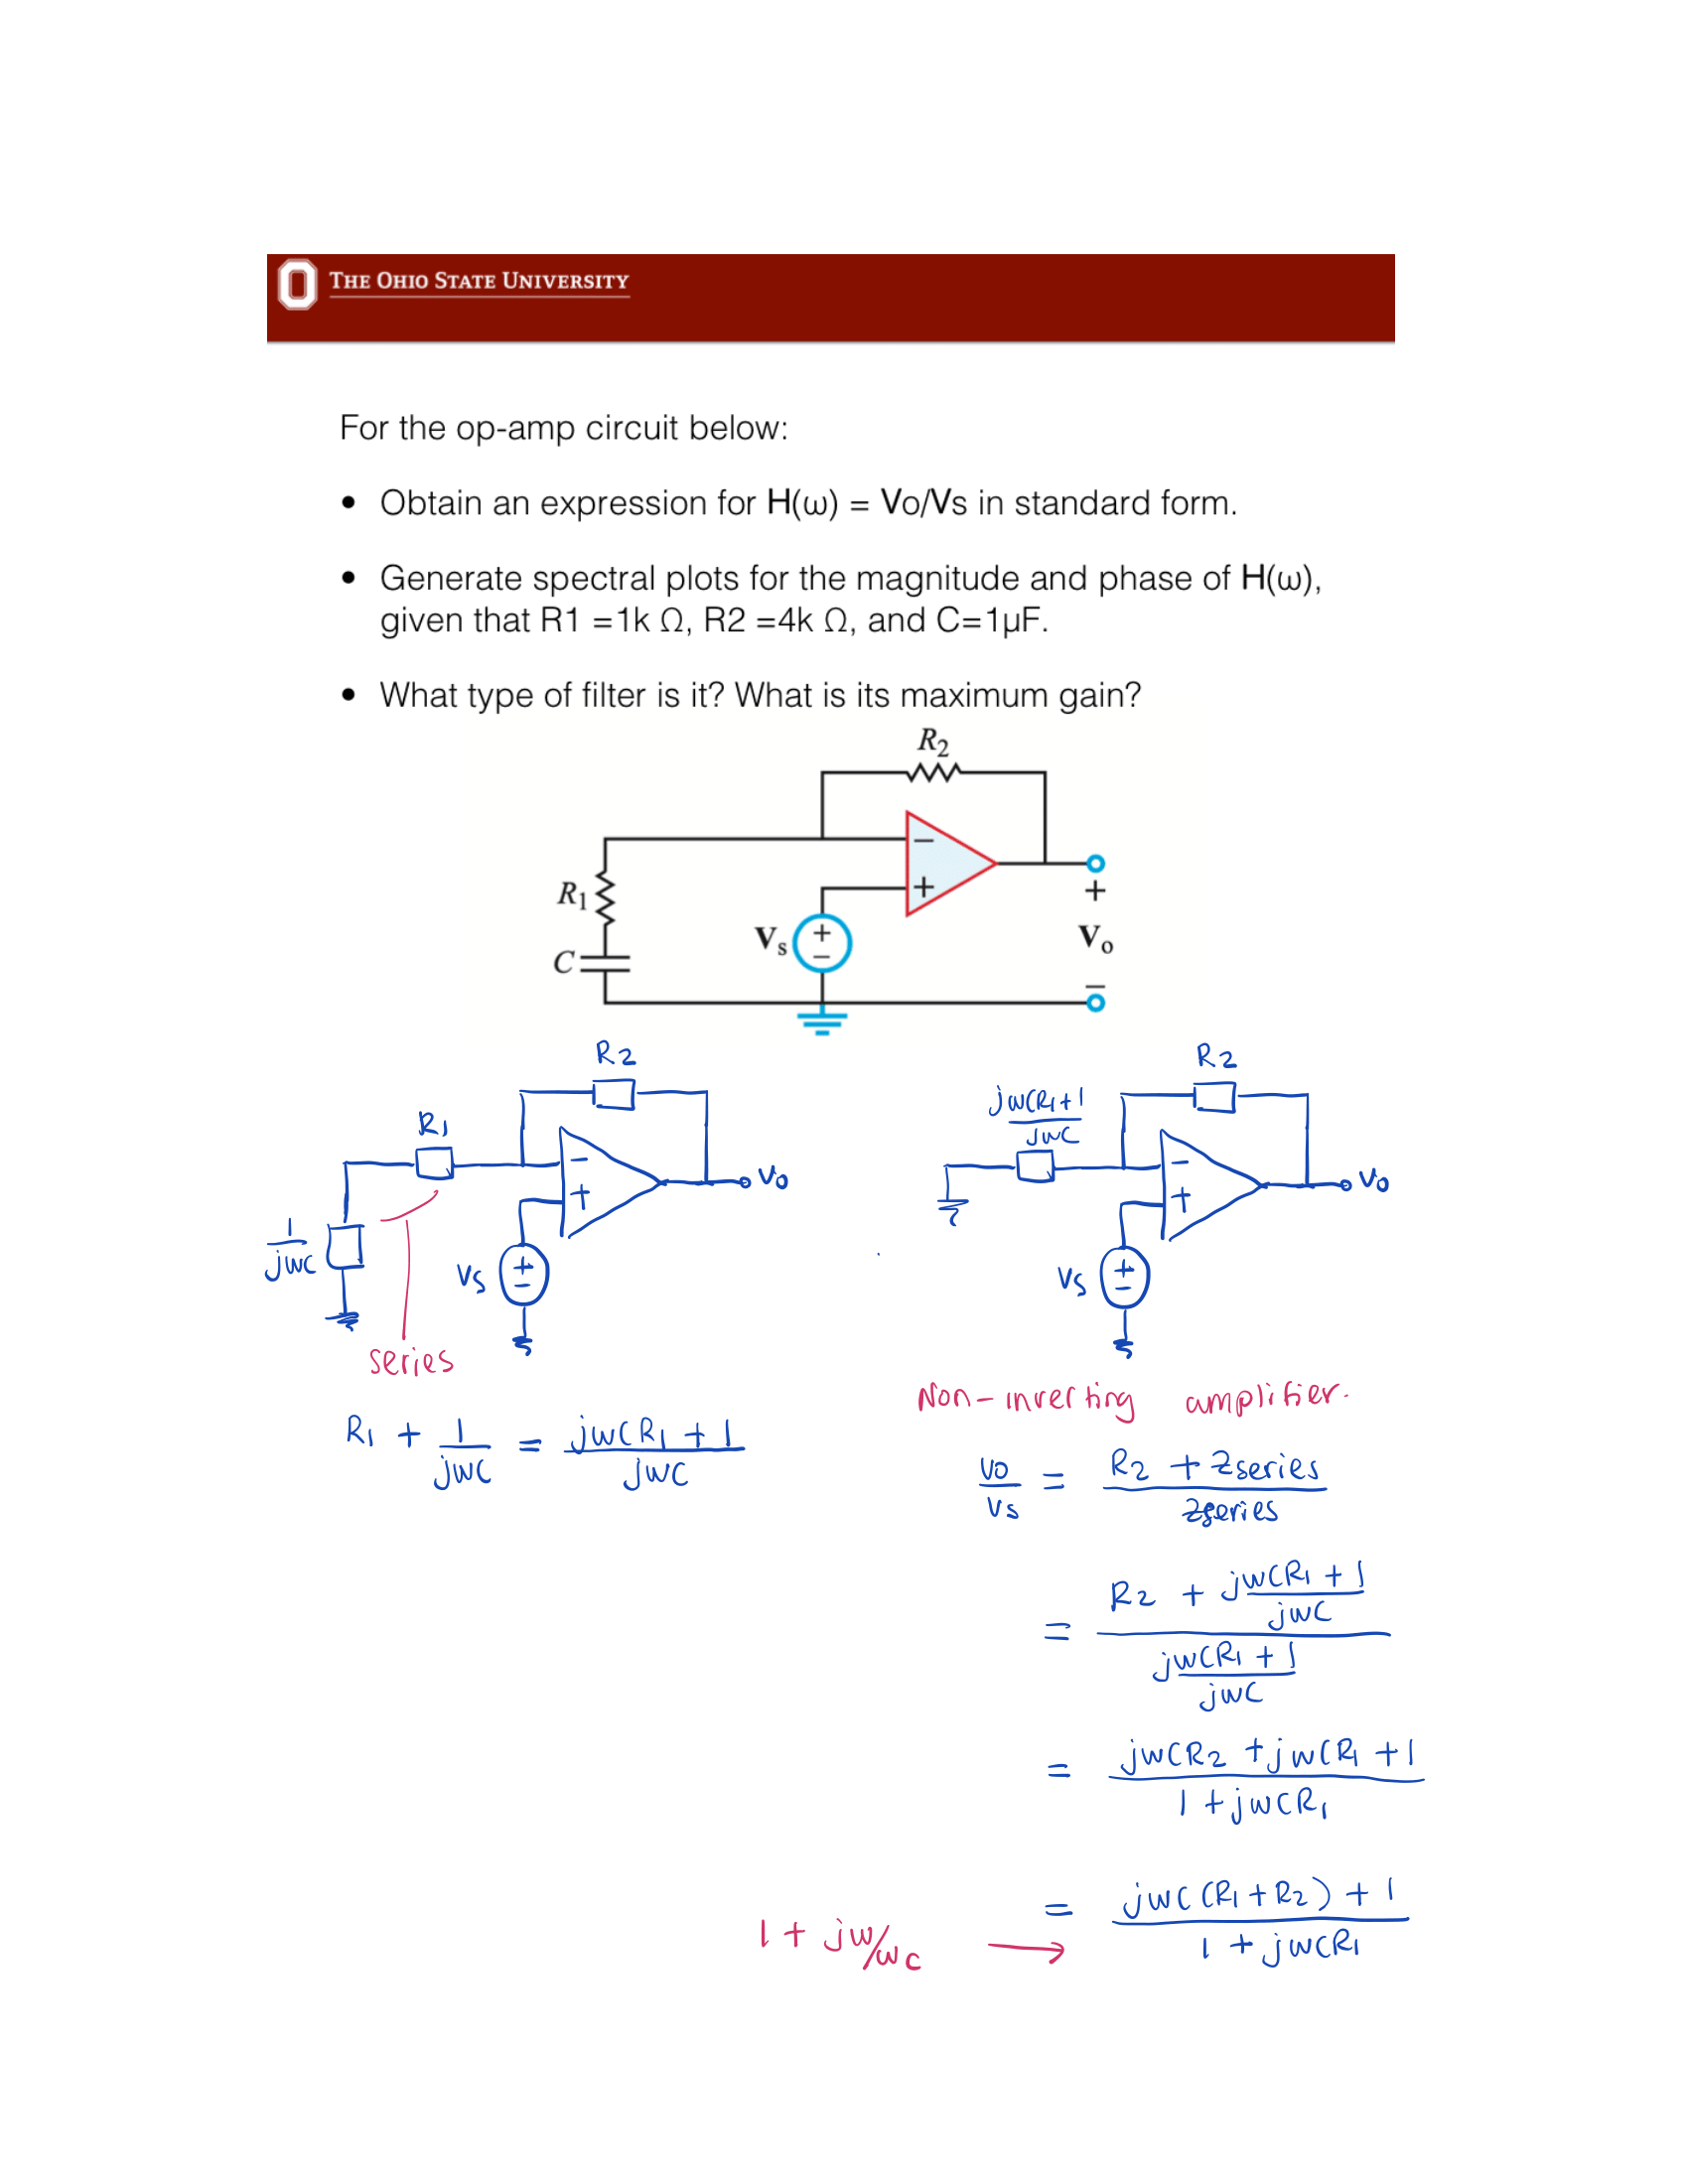 THE OHIO STATE UNIVERSITY
For the op-amp circuit below:
• Obtain an expression for H(ω) = Vo/Vs in standard form.
• Generate spectral plots for the magnitude and phase of H(ω),
given that R1 =1k Ω, R2 =4k Ω, and C=1µF.
• What type of filter is it? What is its maximum gain?
R2
−
+
R1
+
Vs
+
−
Vo
C
−
R2
R1
−
+
Vo
1/jωC
Vs
+
−
series
R1 + 1/jωC = (jωCR1 + 1)/jωC
R2
(jωCR1+1)/jωC
−
+
Vo
Vs
+
−
Non-inverting amplifier.
Vo/Vs = (R2 + Zseries)/Zseries
= (R2 + (jωCR1 + 1)/jωC)/((jωCR1 + 1)/jωC)
= (jωCR2 + jωCR1 + 1)/(1 + jωCR1)
1 + jω/ωc → = (jωC(R1+R2) + 1)/(1 + jωCR1)